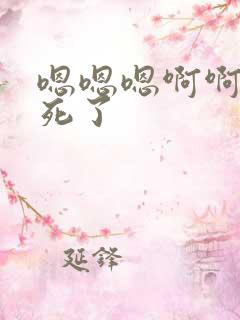 嗯嗯嗯啊啊
死了
延鋒